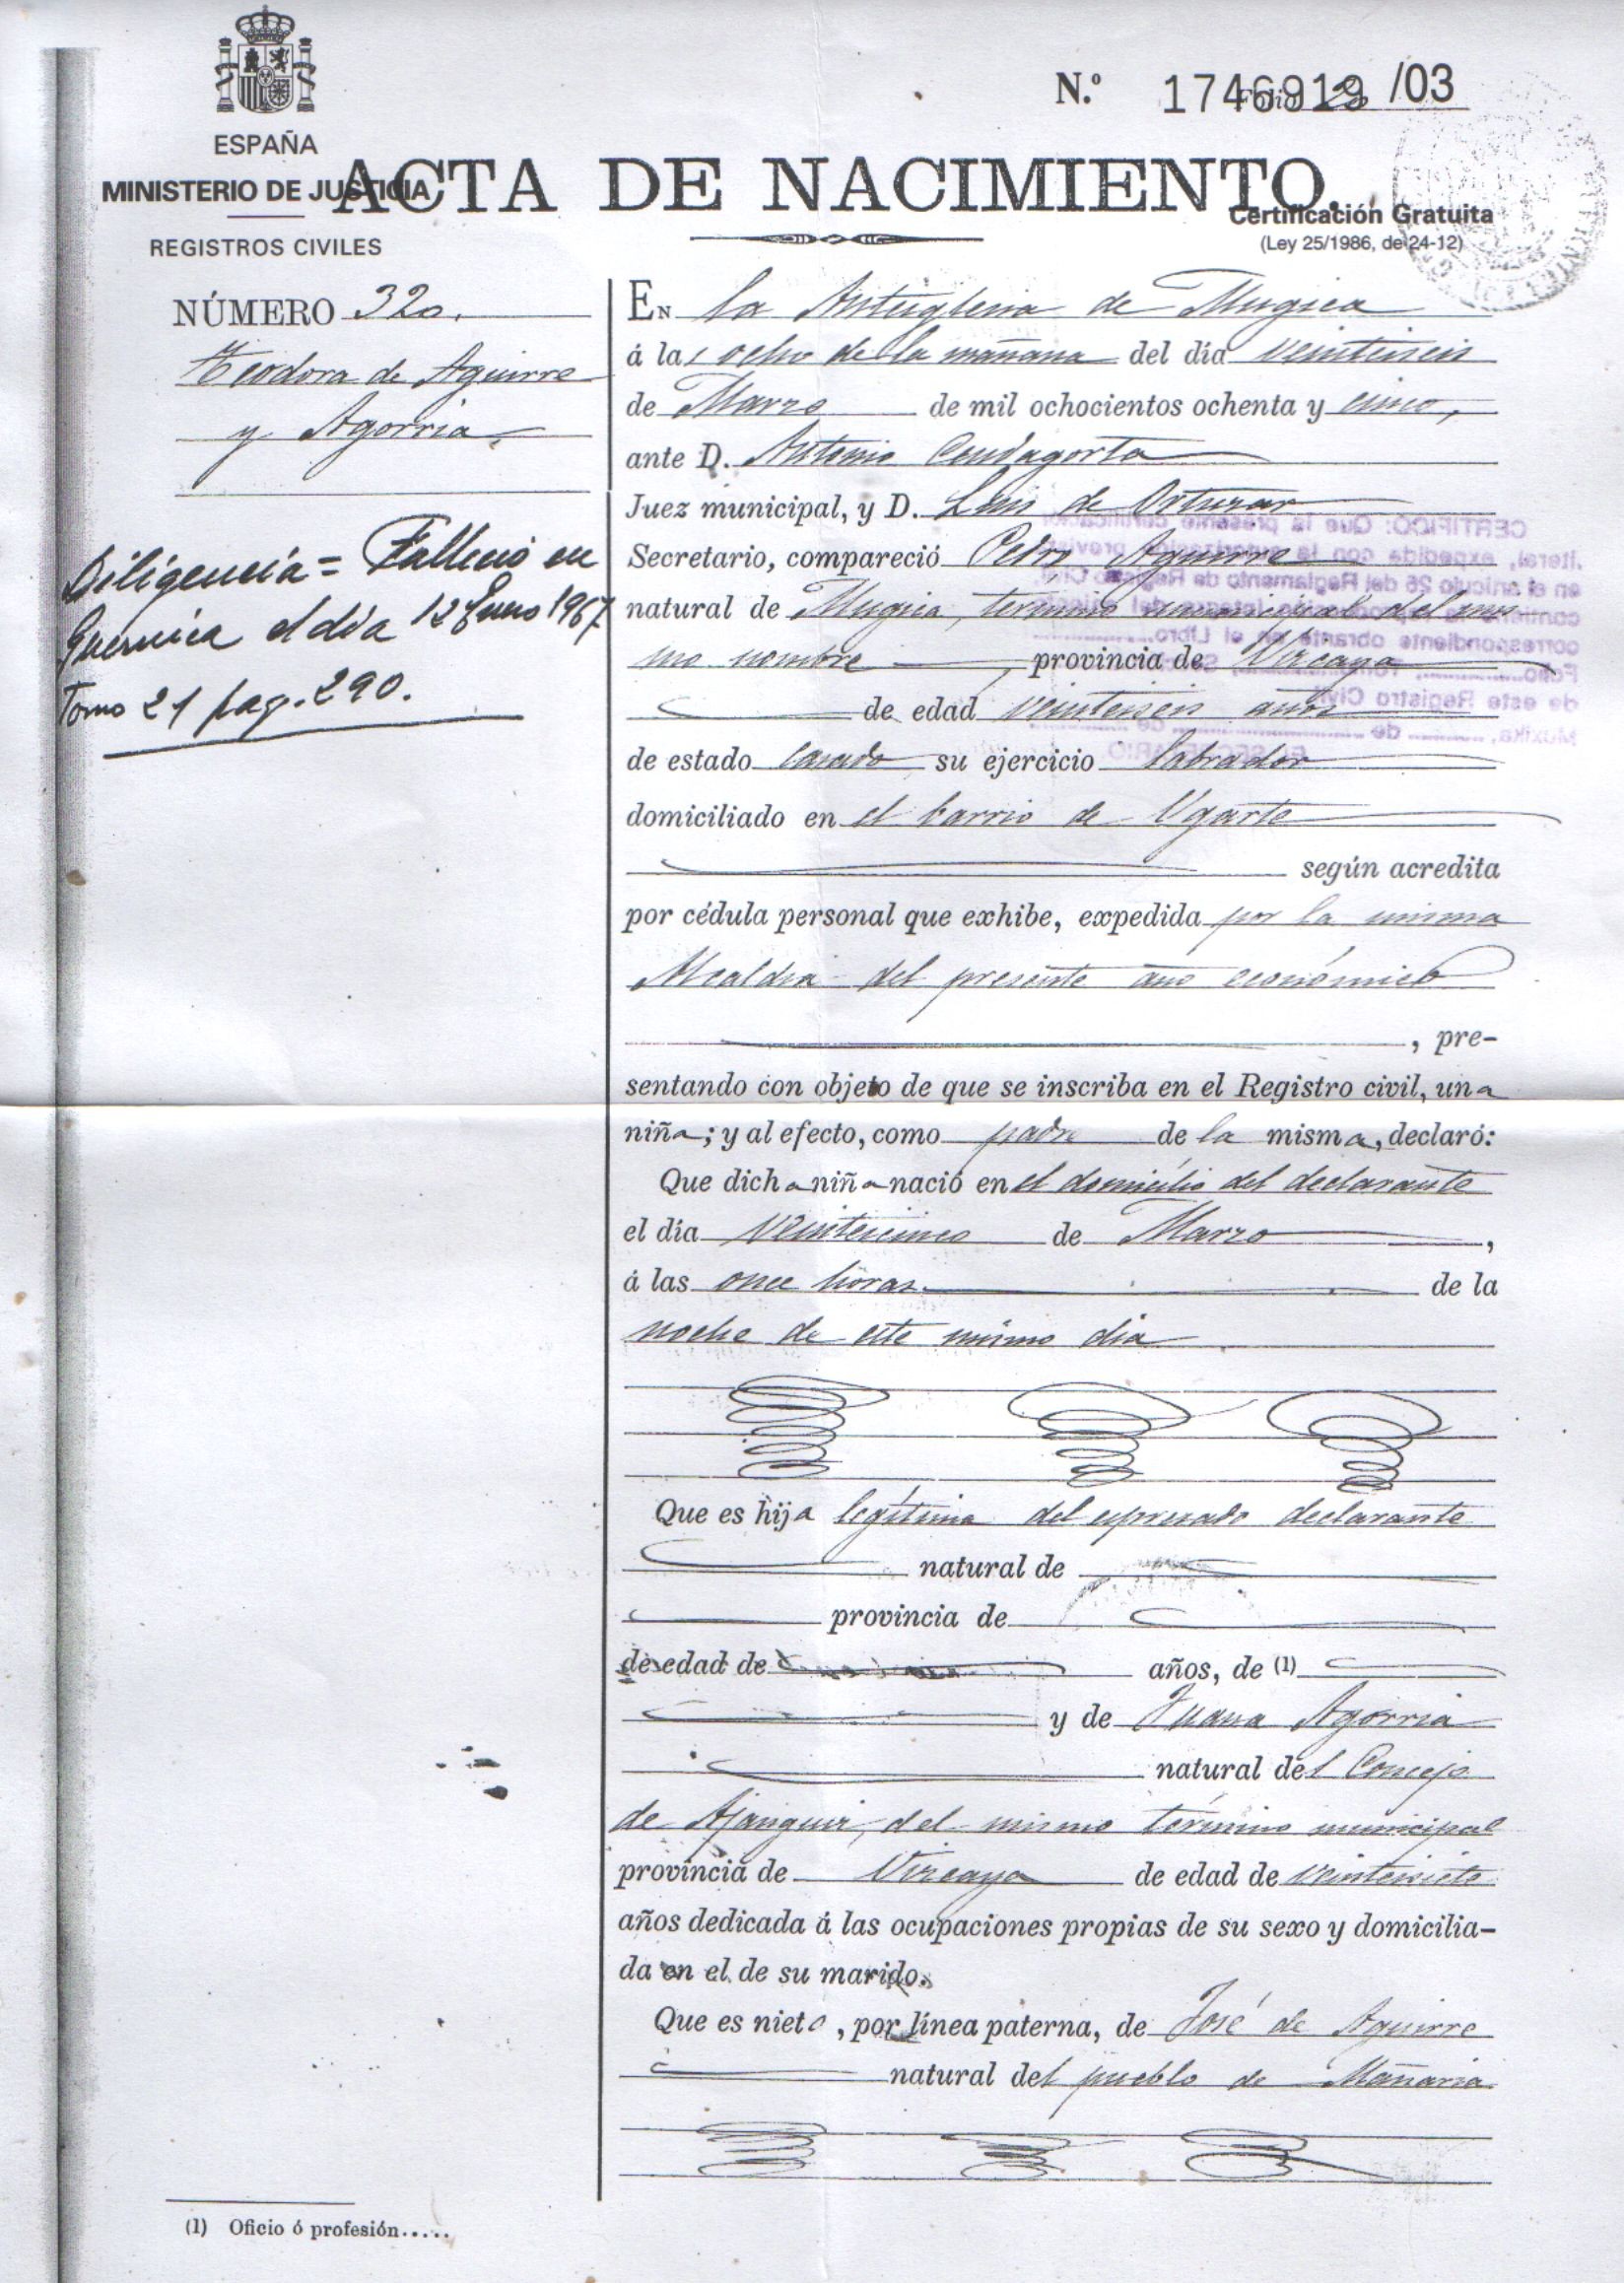 ESPAÑA
MINISTERIO DE JUSTICIA
REGISTROS CIVILES
N.º 1746919 /03
ACTA DE NACIMIENTO.
Certificación Gratuita
(Ley 25/1986, de 24-12)
NÚMERO 320.
Teodora de Aguirre
y Agorria.
Diligencia = Falleció en
Guernica el día 12 Enero 1967
Tomo 21 pag. 290.
EN la Anteiglesia de Mugica
á las ocho de la mañana del día veintiseis
de Marzo de mil ochocientos ochenta y cinco,
ante D. Antonio Cendagorta
Juez municipal, y D. Luis de Orturar
Secretario, compareció Pedro Aguirre
natural de Mugica, termino municipal del mis-
mo nombre, provincia de Vizcaya
de edad veintiseis años
de estado casado su ejercicio labrador
domiciliado en el barrio de Ugarte
según acredita
por cédula personal que exhibe, expedida por la misma
Alcaldia del presente año económico
, pre-
sentando con objeto de que se inscriba en el Registro civil, una
niña; y al efecto, como padre de la misma, declaró:
Que dicha niña nació en el domicilio del declarante
el día veinticinco de Marzo,
á las once horas de la
noche de este mismo dia
Que es hija legítima del expresado declarante
natural de
provincia de
de edad de años, de (1)
y de Juana Agorria
natural del Concejo
de Ajanguiz, del mismo término municipal
provincia de Vizcaya de edad de veintisiete
años dedicada á las ocupaciones propias de su sexo y domicilia-
da en el de su marido.
Que es nieta, por línea paterna, de José de Aguirre
natural del pueblo de Mañaria
(1) Oficio ó profesión.....